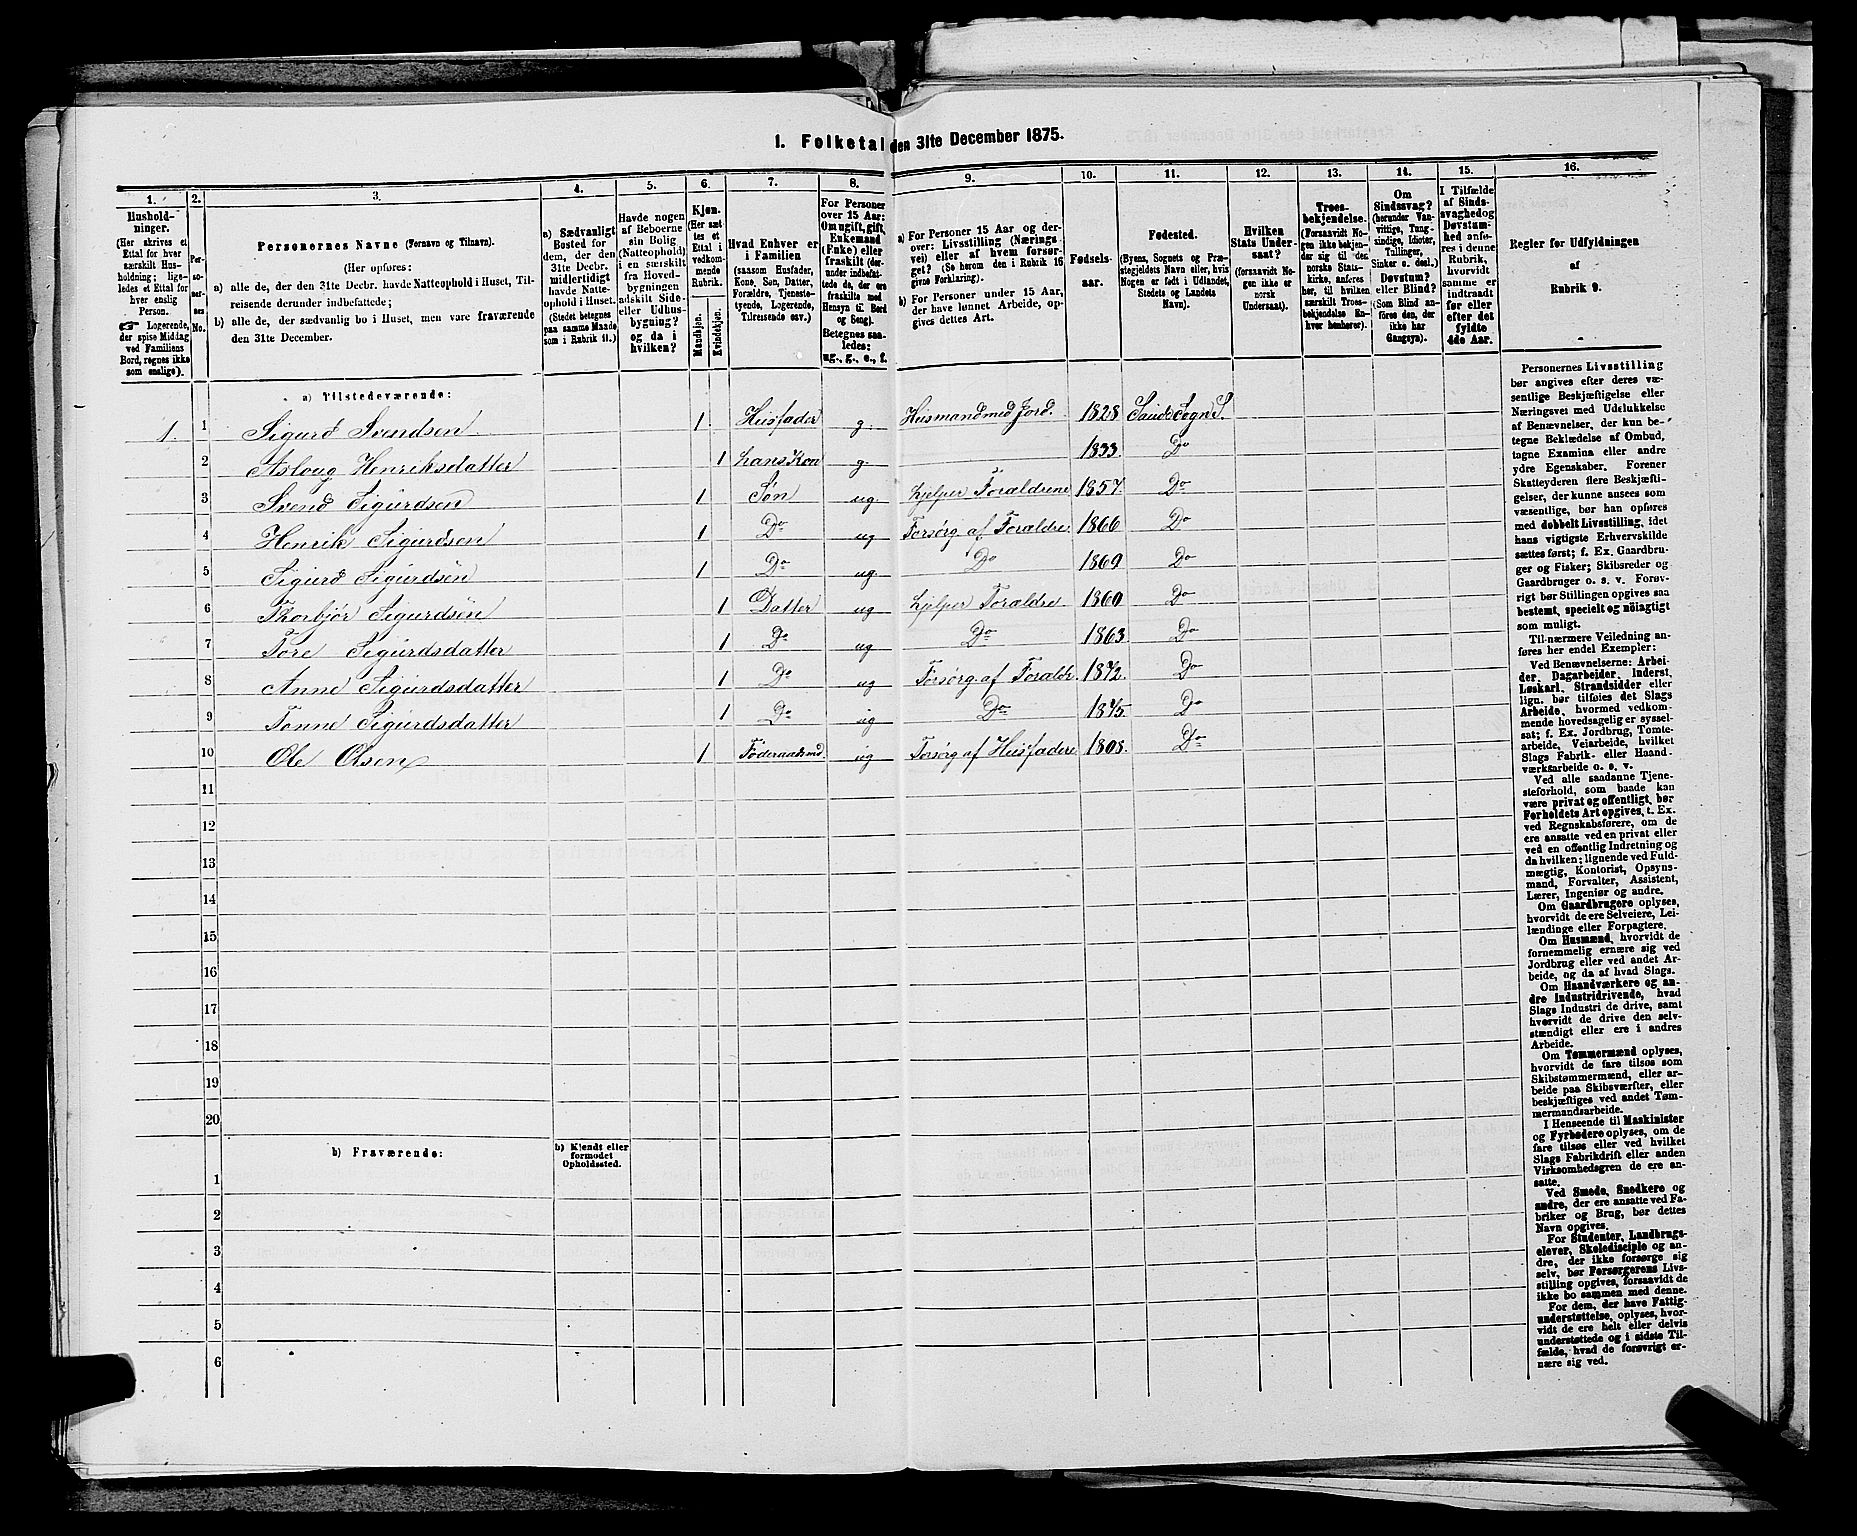 1. Folketal den 31te December 1875.
1. 2. 3. 4. 5. 6. 7. 8. 9. 10. 11. 12. 13. 14. 15. 16.
Hushold-
ninger.
(Her skrives et
Ettal for hver
særskilt Hus-
holdning; lige-
ledes et Ettal for
hver enslig
Person.
☞ Logerende,
der spise Middag
ved Familiens
Bord, regnes ikke
som enslige).
Per-
so-
ner-
nes
No.
Personernes Navne (Fornavn og Tilnavn).
(Her opføres:
a) alle de, der den 31te Decbr. havde Natteophold i Huset, Til-
reisende derunder indbefattede;
b) alle de, der sædvanlig bo i Huset, men vare fraværende
den 31te December.
a) Sædvanligt
Bosted for
dem, der den
31te Decbr.
midlertidigt
havde Natte-
ophold i Huset.
(Stedet betegnes
paa samme Maade
som i Rubrik 11.)
Havde nogen
af Beboerne
sin Bolig
(Natteophold)
i en særskilt
fra Hoved-
bygningen
adskilt Side-
eller Udhus-
bygning?
og da i
hvilken?
Kjøn.
(Her sæt-
tes et
Ettal i
vedkom-
mende
Rubrik.
Mandskjøn.
Kvindekjøn.
Hvad Enhver er
i Familien
(saasom Husfader,
Kone, Søn, Datter,
Forældre, Tjeneste-
tyende, Logerende,
Tilreisende osv.)
For Personer
over 15 Aar:
Om ugift, gift,
Enkemand
(Enke) eller
fraskilt (der-
under indbefat-
tede de, der
ere fraskilte med
Hensyn til Bord
og Seng).
Betegnes saa-
ledes:
ug., g., e., f.
a) For Personer 15 Aar og der-
over: Livsstilling (Nærings-
vei) eller af hvem forsør-
get? (Se herom den i Rubrik 16
givne Forklaring).
b) For Personer under 15 Aar,
der have lønnet Arbeide, op-
gives dettes Art.
Fødsels-
aar.
Fødested.
(Byens, Sognets og Præ-
stegjeldets Navn eller, hvis
Nogen er født i Udlandet,
Stedets og Landets
Navn).
Hvilken
Stats Under-
saat?
(forsaavidt No-
gen ikke er
norsk
Undersaat).
Troes-
bekjendelse.
(Forsaavidt No-
gen ikke bekjen-
der sig til den
norske Stats-
kirke, anføres
her, til hvilken
særskilt Troes-
bekjendelse En-
hver henhører).
Om
Sindssvag?
(herunder Van-
vittige, Tung-
sindige, Idioter,
Tullinger,
Sinker o. desl.)
Døvstum?
eller Blind?
(Som Blind an-
føres den, der
ikke har
Gangsyn).
I Tilfælde
af Sinds-
svaghed og
Døvstum-
hed anfø-
res i denne
Rubrik,
hvorvidt
samme er
indtraadt
før eller
efter det
fyldte
4de Aar.
Regler for Udfyldningen
af
Rubrik 9.
a) Tilstedeværende:
1. 1 Sigurd Svendsen 1 Husfader g. Husmand med Jord. 1828 Sauds Sogn S.
2 Aslaug Henriksdatter 1 hans Kone g. 1833. Do
3 Svend Sigurdsen 1 Søn ug. hjelper Forældrene 1857. Do
4 Henrik Sigurdsen 1 Do ug Forsørg. af Forældre. 1866 Do
5 Sigurd Sigurdsen 1 Do ug. Do 1869 Do
6 Thorbjør Sigurdsen 1 Datter ug hjelper Forældre 1860 Do
7 Tore Sigurdsdatter 1 Do ug Do 1863. Do
8 Anne Sigurdsdatter 1 Do ug Forsørg. af Forældr. 1872. Do
9 Tonne Sigurdsdatter 1 Do ug Do 1875. Do
10 Ole Olsen 1 Føderaadsmd. ug Forsørg af Husfadere 1803. Do
11
12
13
14
15
16
17
18
19
20
b) Fraværende:
b) Kjendt eller
formodet
Opholdssted.
1
2
3
4
5
6
Personernes Livsstilling
bør angives efter deres væ-
sentlige Beskjæftigelse eller
Næringsvei med Udelukkelse
af Benævnelser, der kun be-
tegne Beklædelse af Ombud,
tagne Examina eller andre
ydre Egenskaber. Forener
Skatteyderen flere Beskjæfti-
gelser, der kunne ansees som
væsentlige, bør han opføres
med dobbelt Livsstilling, idet
hans vigtigste Erhvervskilde
sættes først; f. Ex. Gaardbru-
ger og Fisker; Skibsreder og
Gaardbruger o. s. v. Forøv-
rigt bør Stillingen opgives saa
bestemt, specielt og nøiagtigt
som muligt.
Til nærmere Veiledning an-
føres her endel Exempler:
Ved Benævnelserne: Arbei-
der, Dagarbeider, Inderst,
Løskarl, Strandsidder eller
lign. bør tilføies det Slags
Arbeide, hvormed vedkom-
mende hovedsagelig er syssel-
sat; f. Ex. Jordbrug, Tomte-
arbeide, Veiarbeide, hvilket
Slags Fabrik- eller Haand-
værksarbeide o. s. v.
Ved alle saadanne Tjene-
steforhold, som baade kan
være privat og offentligt, bør
Forholdets Art opgives, t. Ex.
ved Regnskabsførere, om de
ere ansatte ved en privat eller
ved en offentlig Indretning og
da hvilken; lignende ved Fuld-
mægtig, Kontorist, Opsyns-
mand, Forvalter, Assistent,
Lærer, Ingeniør og andre.
Om Gaardbrugere oplyses,
hvorvidt de ere Selveiere, Lei-
lændinge eller Forpagtere.
Om Husmænd, hvorvidt de
fornemmelig ernære sig ved
Jordbrug eller ved andet Ar-
beide, og da af hvad Slags.
Om Haandværkere og an-
dre Industridrivende, hvad
Slags Industri de drive, samt
hvorvidt de drive den selv-
stændigt eller ere i andres
Arbeide.
Om Tømmermænd oplyses,
hvorvidt de fare tilsøs som
Skibstømmermænd, eller ar-
beide paa Skibsværfter, eller
beskjæftiges ved andet Tøm-
mermandsarbeide.
I Henseende til Maskinister
og Fyrbødere oplyses, om de
fare tilsøs eller ved hvilket
Slags Fabrikdrift eller anden
Virksomhedsgren de ere an-
satte.
Ved Smede, Snedkere og
andre, der ere ansatte ved Fa-
briker og Brug, bør dettes
Navn opgives.
For Studenter, Landbrugs-
elever, Skoledisciple og an-
dre, der ikke forsørge sig
selv, bør Forsørgerens Livs-
stilling opgives, forsaavidt de
ikke bo sammen med denne.
For dem, der have Fattig-
understøttelse, oplyses, hvor-
vidt de ere helt eller delvis
understøttede og i sidste Til-
fælde, hvad de forøvrigt er-
nære sig ved.